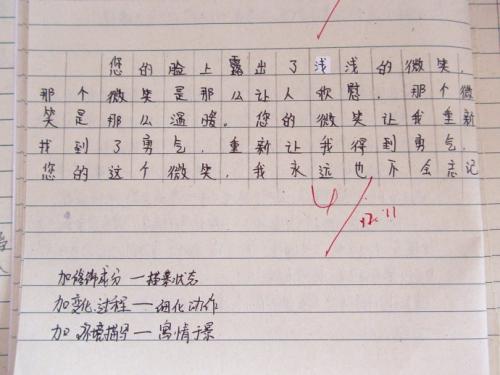 您的脸上露出了浅浅的微笑，
那个微笑是那么让人欣慰，那个微
笑是那么温暖。您的微笑让我重新
找到了勇气，重新让我得到勇气，
您的这个微笑，我永远也不会忘记
加修饰成分—描摹状态
加变化过程—细化动作
加环境描写—寓情于景